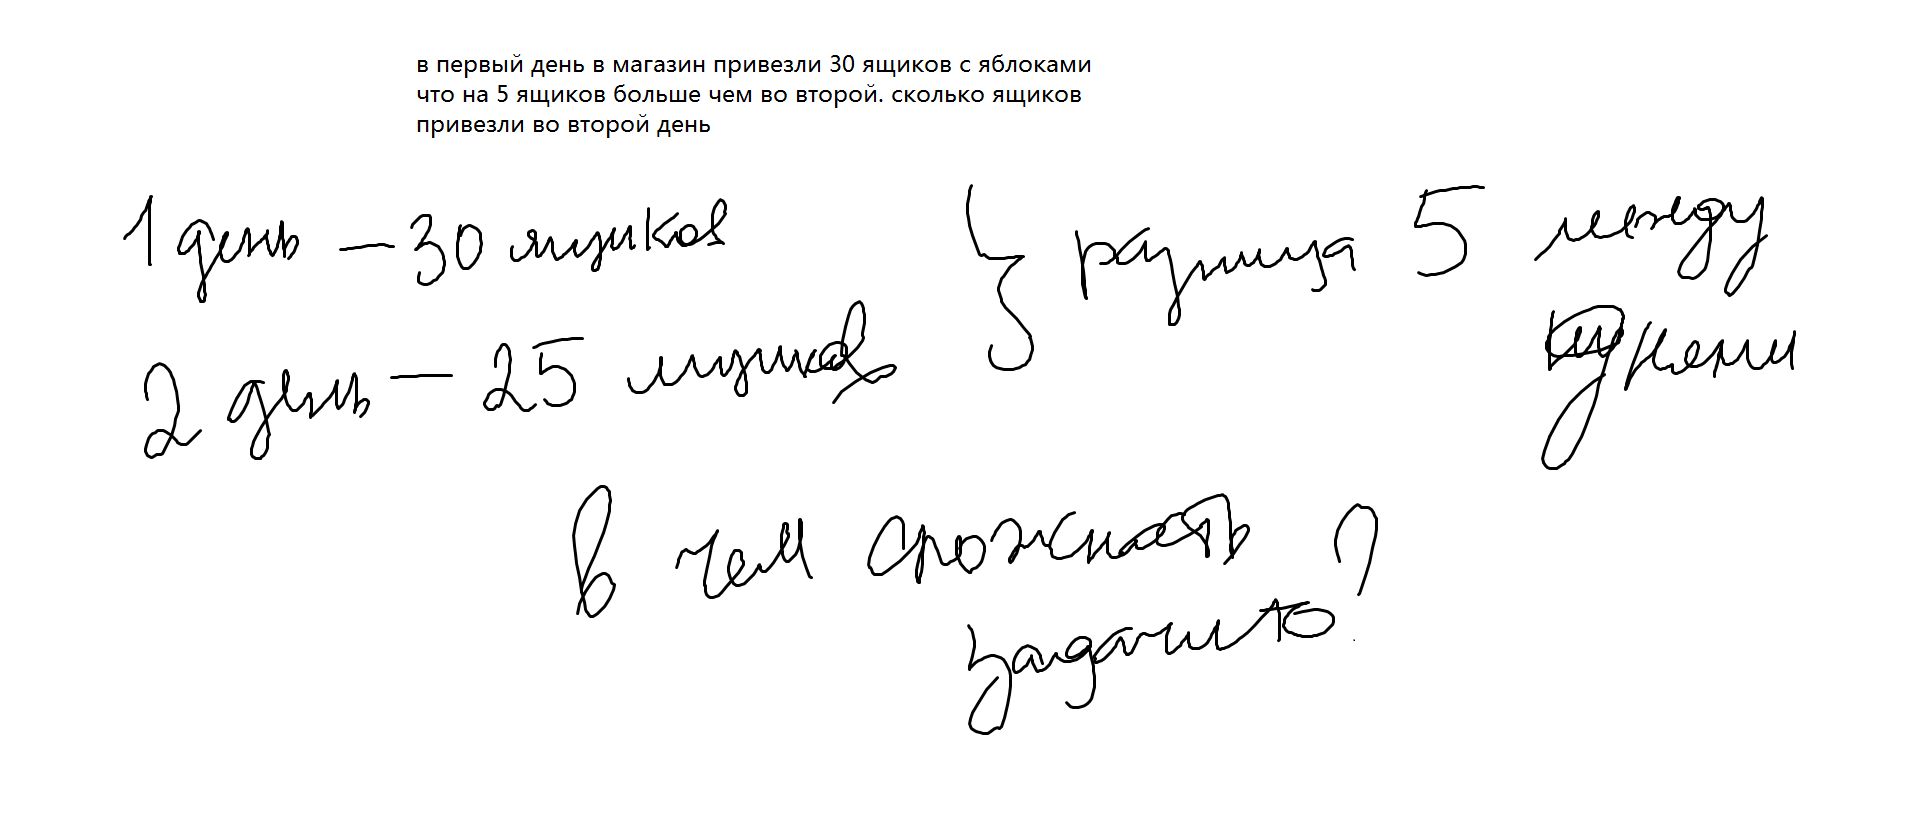 в первый день в магазин привезли 30 ящиков с яблоками
что на 5 ящиков больше чем во второй. сколько ящиков
привезли во второй день
1 день - 30 ящиков
2 день - 25 ящиков
} разница 5 между
ними
в чем сложность ?
задачи то